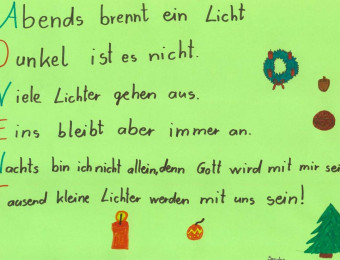 Abends brennt ein Licht
Dunkel ist es nicht.
Viele Lichter gehen aus.
Eins bleibt aber immer an.
Nachts bin ich nicht allein, denn Gott wird mit mir sei
Tausend kleine Lichter werden mit uns sein!